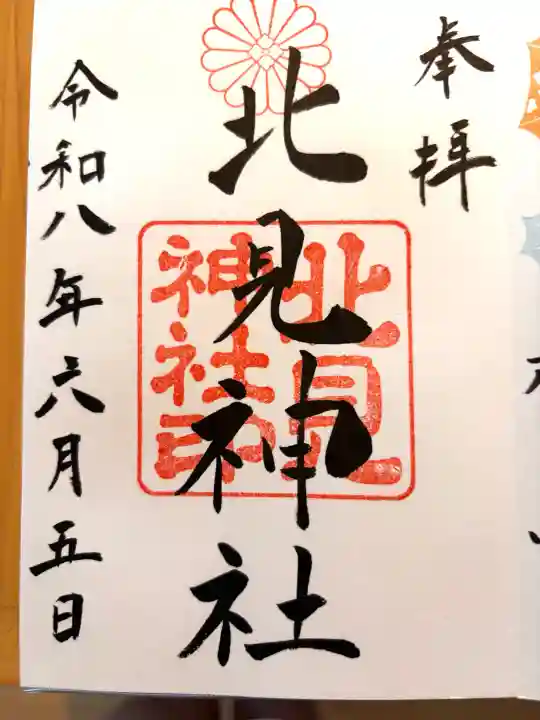 奉拝
北見神社
北見
神社印
令和八年六月五日